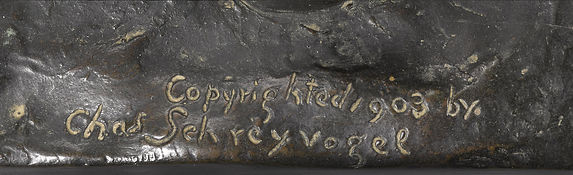 Copyrighted, 1903 by.
Chas Schreyvogel